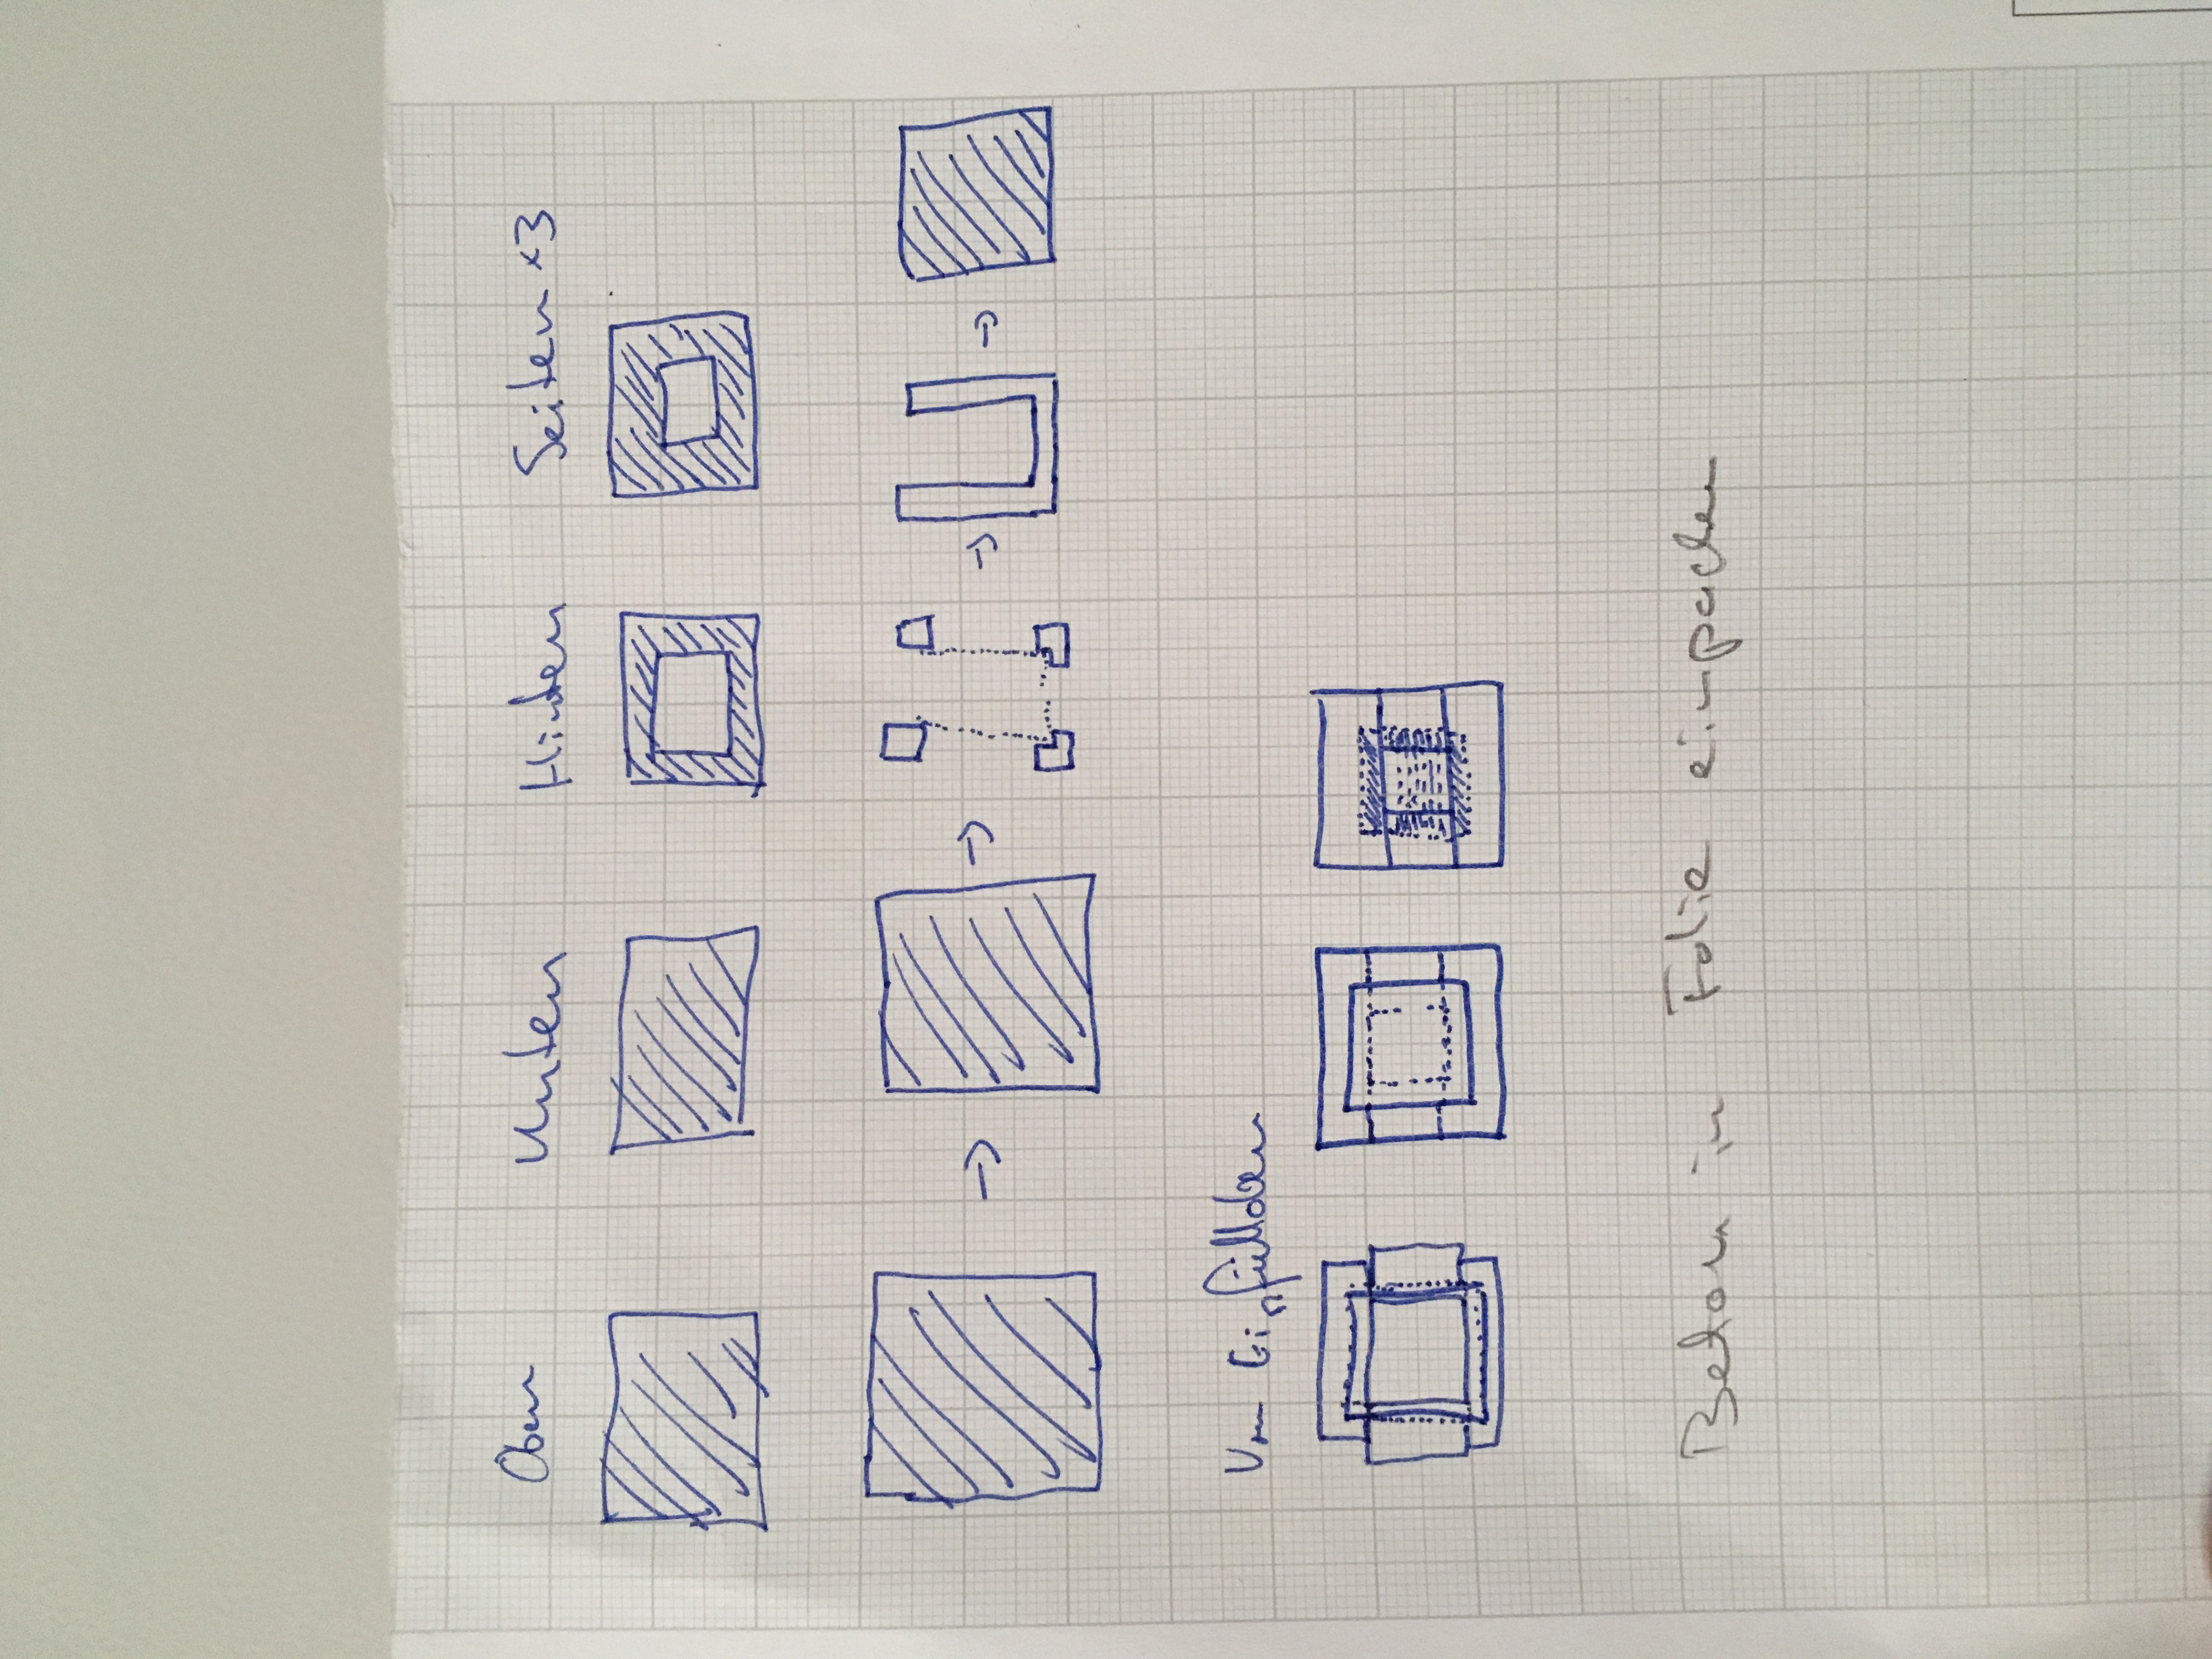 Oben Unten Hinten Seiten x3
Von Einfülloben
Beton in Folie einpacken